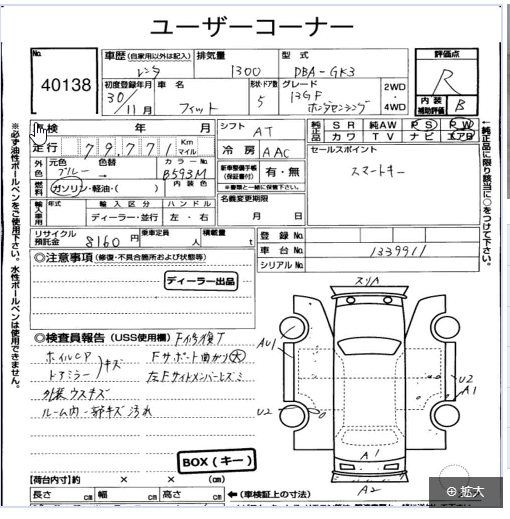 ユーザーコーナー
No. 40138
車歴 (自家用以外は記入) レンタ
排気量 1300
型式 DBA-GK3
評価点 R
内装補助評価 B
初度登録年月 30/11月
車名 フィット
形状・ドア数 5
グレード 13GF ホンダセンシング
2WD
4WD
車検 年 月
走行 79771 Km マイル
シフト AT
冷房 AAC
純正品 SR 純AW PS PW
カワ TV ナビ エアB
セールスポイント
スマートキー
外色 元色 ブルー → 色替
カラーNo. B593M
内装色
燃料 ガソリン・軽油・( )
新車整備手帳 (保証書付) 有・無
※書類と一緒に保管下さい。
名義変更期限
月 日
輸入車用 年式 輸入区分 ハンドル
ディーラー・並行 左・右
リサイクル預託金 8160 円
乗車定員 人
積載量 t
登録No.
車台No. 1339911
シリアルNo.
◎注意事項 (修復・不具合箇所および状態等)
ディーラー出品
◎検査員報告 (USS使用欄) F修復丁
ホイルCP
ドアミラー
キズ
Fサポート曲がり 大
左Fサイドメンバーヒズミ
外装ウスキズ
ルーム内一部キズ汚れ
BOX(キー)
【荷台内寸】約 × × (cm)
長さ cm 幅 cm 高さ cm
←(車検証上の寸法)
スリA
AU1
U2
U2
A1
A1
A2
※必ず油性ボールペンをご使用下さい。水性ボールペンは使用できません。
←純正品に限り該当に○をつけて下さい。
拡大